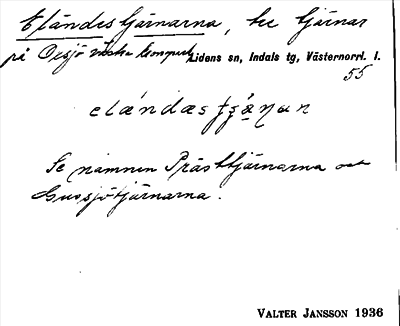 Eländestjärnarna, tre tjärnar
på Oxsjö västra Lidens sn, Indals tg, Västernorrl. l.
55
elændæs
Se namnen Prästtjärnarna och
Gussjötjärnarna.
VALTER JANSSON 1936